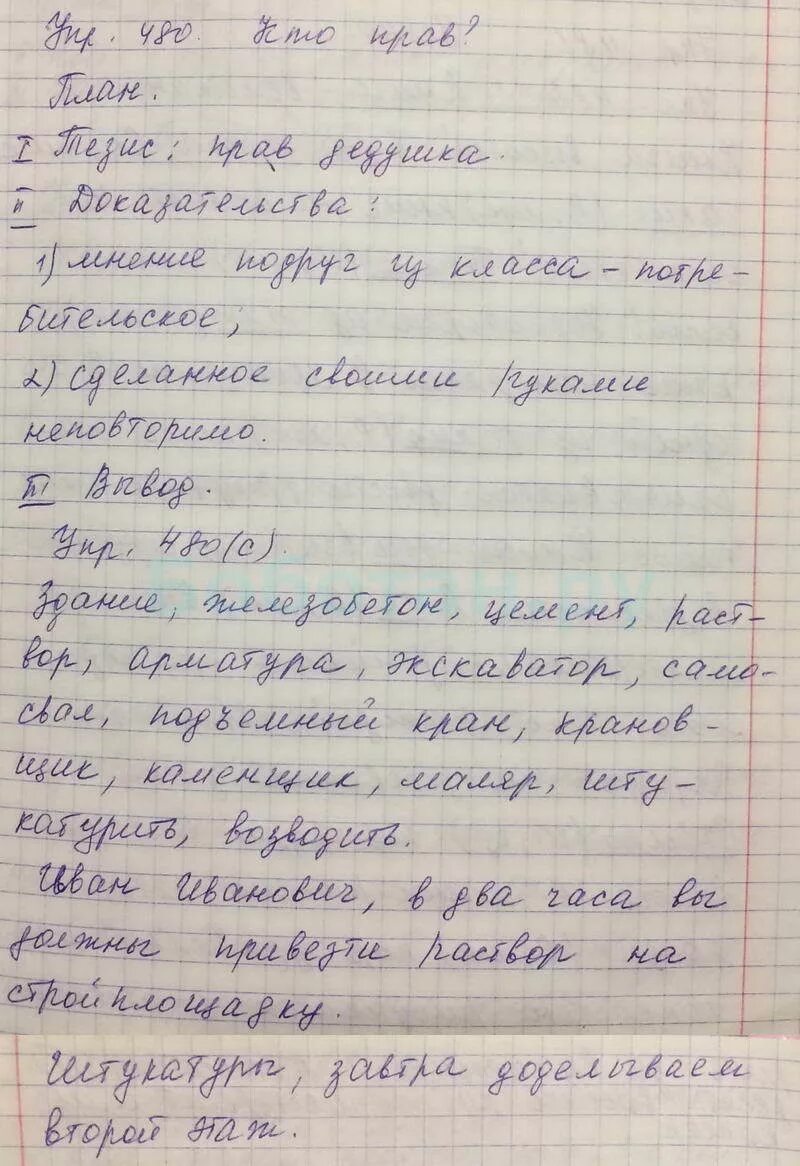 Упр. 480. Кто прав?
План.
I Тезис: прав дедушка.
II Доказательства:
1) мнение подруг из класса – потре-
бительское;
2) сделанное своими руками
неповторимо.
III Вывод.
Упр. 480(с).
Здание, железобетон, цемент, раст-
вор, арматура, экскаватор, само-
свал, подъемный кран, кранов-
щик, каменщик, маляр, шту-
катурить, возводить.
Иван Иванович, в два часа вы
должны привезти раствор на
стройплощадку.
Штукатуры, завтра доделываем
второй этаж.